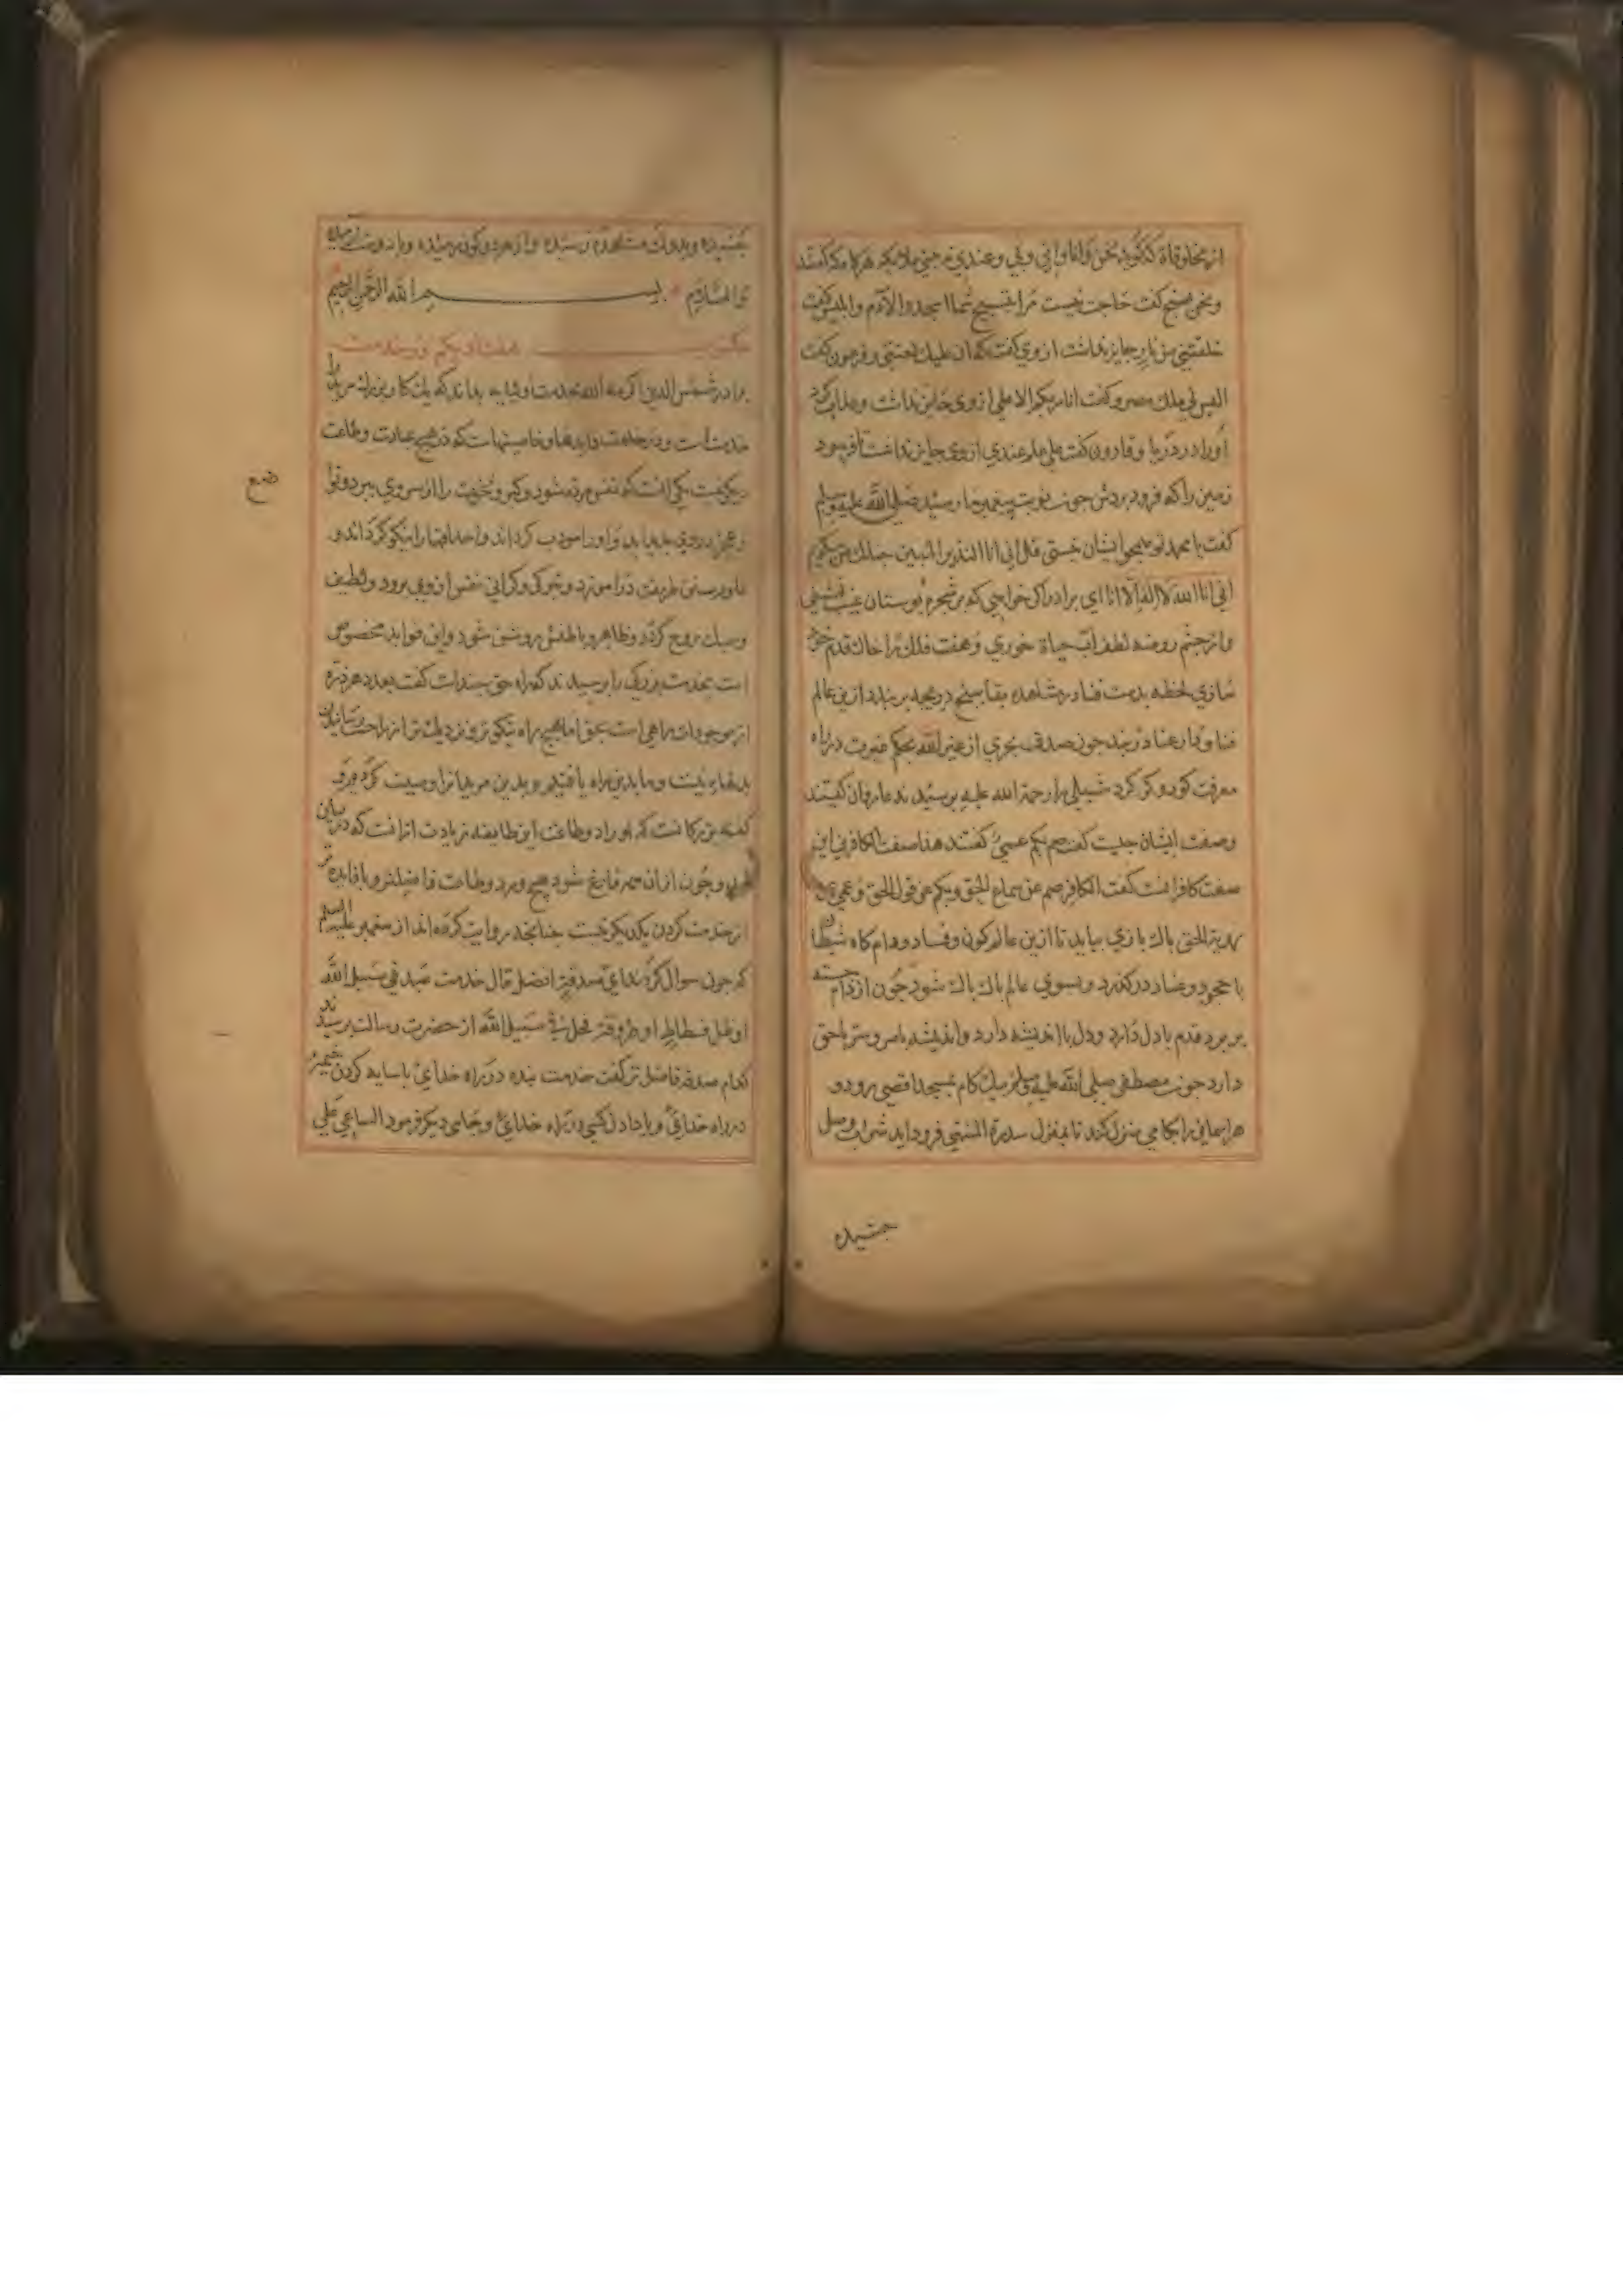 از مخلوقاة که گوید نحن و انا و انی و لی و عندی مرجنی ملایکه هرکاه که گفتند
و نحن نسبح گفت حاجت نیست مرا تسبیح شما اسجدوا لآدم و ابلیس گفت
خلقتنی من نار جایز نداشت از وی گفت که ان علیک لعنتی و فرعون گفت
الیس لی ملک مصر و گفت انا ربکم الاعلی از وی جایز نداشت و هلاک کرد
او را در دریا و قارون گفت علی علم عندی از وی جایز نداشت تا فرمود
زمین را که فرو بردش جون نوبت پیغمبر ما رسید صلی الله علیه وسلم
گفت یا محمد تو همچو ایشان نیستی قل انی انا النذیر المبین جمله من میگویم
انی انا الله لا اله الا انا ای برادر اگر خواهی که بر شجره بوستان غیب
و از جشم روضه لطف آب حیاة خوری و هفت فلک را خاک قدم خود
سازی لحظه بدست فنا در مشاهده بقا بسنج دریجه بربندد ازین عالم
فنا و دار عنا در بند جون صدقی بحری از غیر الله بحکم غیرت در راه
معرفت کور و کر کرد شبلی را رحمة الله علیه پرسیدند عارفان کیستند
وصفت ایشان جیست گفت صم بکم عمی گفتند هذا صفت الکافرین این
صفت کافرانست گفت الکافر صم عن سماع الحق و بکم عن قول الحق و عمی عن
رؤیة الحق باک بازی بباید تا ازین عالم کون و فساد و دام کاه شیطان
با جحود و عناد درگذرد و بسوی عالم باک باک شود جون از دام جسته
بر برد قدم با دل دارد و دل با اندیشه دارد و اندیشه با سر و سر با حق
دارد جون مصطفی صلی الله علیه وسلم بیک کام بمسجد اقصی رود و
هر آسمانی را بکامی منزل کند تا بمنزل سدرة المنتهی فرود آید شراب وصل
جشیده
جشیده و بدولت مشاهده رسیده و از هر دو کون رمیده و با دوست آرمیده
والسلام بسم الله الرحمن الرحیم
مکتوب هفتاد و یکم در خدمت
برادر شمس الدین اکرمه الله بخدمت اولیایه بداند که یک کار بزرک مرید را
خدمت است و در خدمت فایدها و خاصیتهاست که در هیچ عبادت و طاعت
دیگر نیست یکی آنست که نفس مرده شود و کبر و نخوت را از سر وی ببرد و تواضع
و عجز در وی بدید آید و او را مودب کرداند و اخلاقها را نیکو کرداند و
علوم سنن طریقت در آموزد و تیرکی و کرانی نفس از وی برود و لطیف
و سبک روح گردد و ظاهر و باطنش روشن شود و این فواید مخصوص
است بخدمت بزرکی را پرسیدند که راه حق بجندات گفت بعدد هر ذره
از موجودات راهی است بحق اما هیچ راه نیکوتر و نزدیکتر از راحت رسانیدن
بدلها نیست و ما بدین راه یافتیم و بدین مریدانرا وصیت کردیم و
گفته بزرکانست که اوراد و طاعت این طایفه زیادت ازانست که در بیان
و جون از ان همه فارغ شود هیچ ورد و طاعت فاضلتر و با فایده تر
از خدمت کردن یکدیکر نیست جنانجه روایت کرده اند از پیغمبر علیه السلم
که جون سوال کردند ای صدقة افضل قال خدمت عبد فی سبیل الله
او ظل فسطاط او طروقة فحل فی سبیل الله از حضرت رسالت پرسیدند
کدام صدقه فاضل تر گفت خدمت بنده در راه خدای یا سایه کردن خیمه
در راه خدای و یا در راه خدای و جای دیگر فرمود الساعی علی